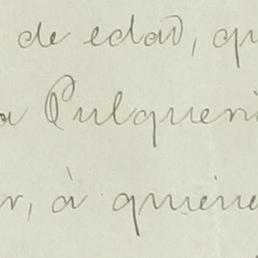 de edad, qu
a Pulqueri
r, à quiene